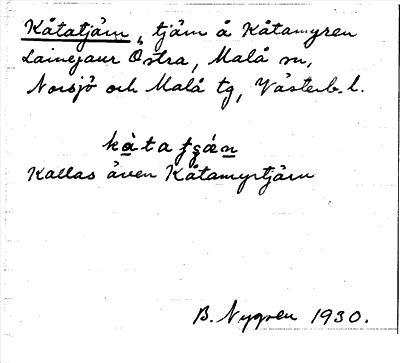 Kåtatjärn, tjärn å Kåtamyren
Lainejaur Östra, Malå sn,
Norsjö och Malå tg, Västerb. l.
Kallas även Kåtamyrtjärn
B. Nygren 1930.